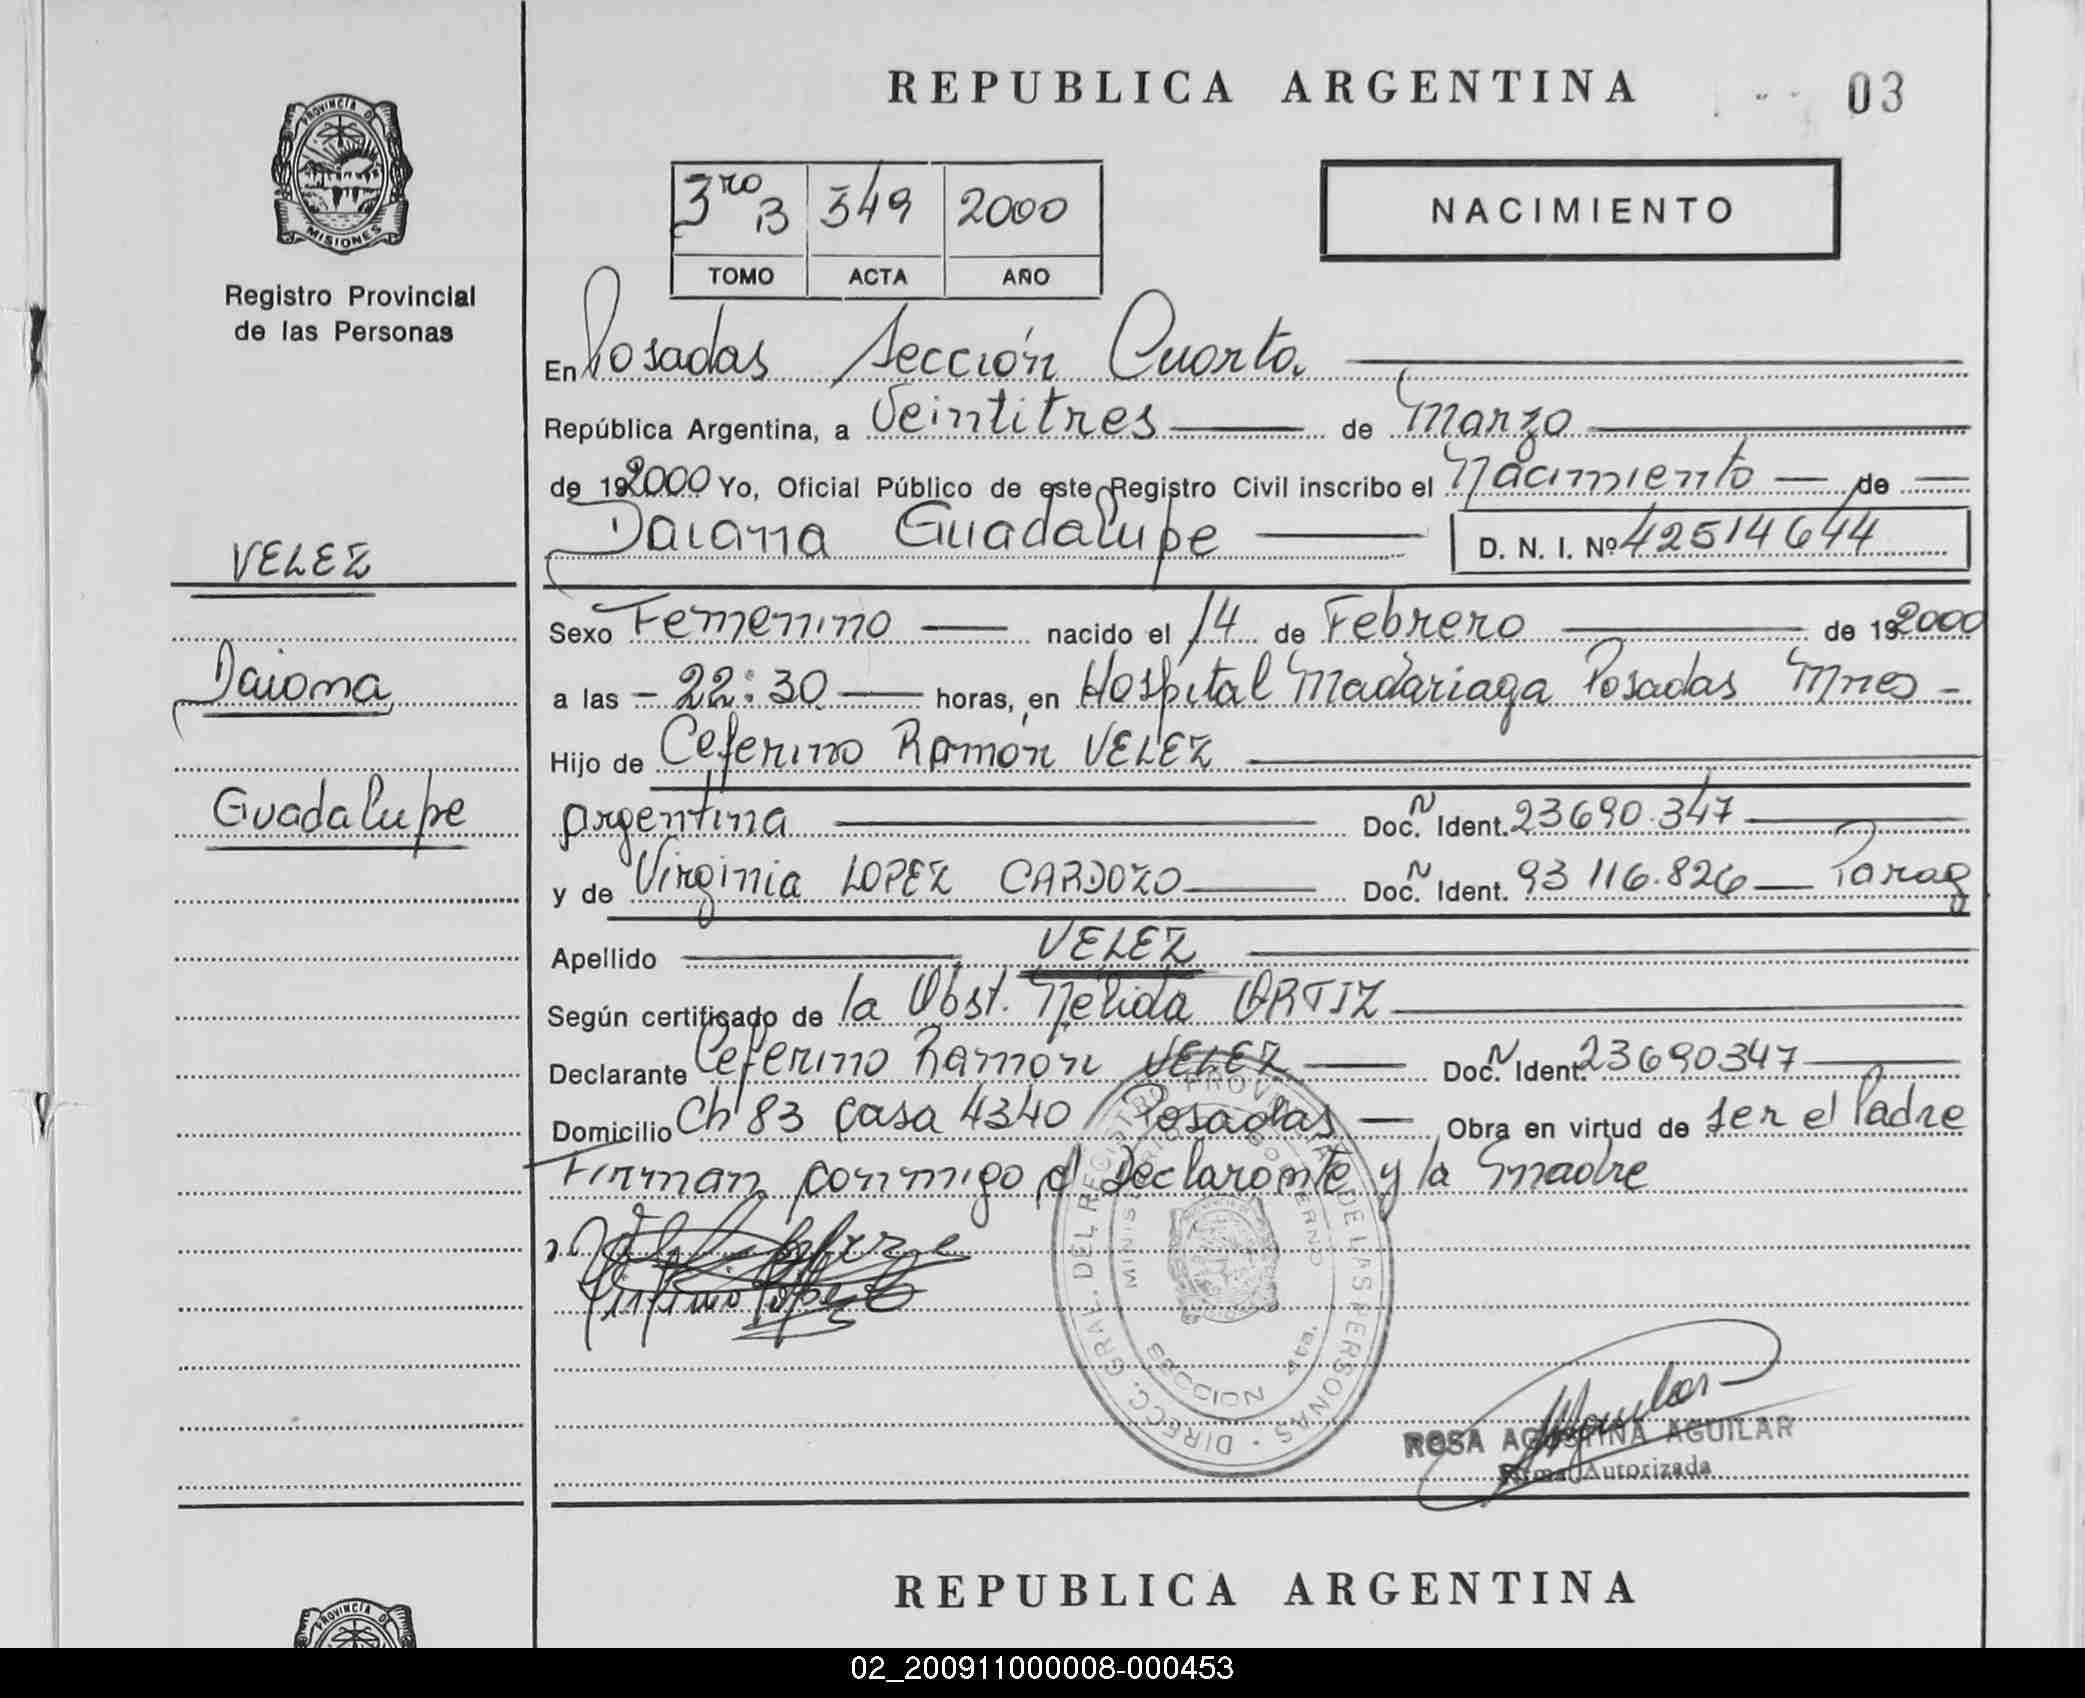 REPUBLICA ARGENTINA
03
PROVINCIA DE
MISIONES
Registro Provincial
de las Personas
3ro B 349 2000
TOMO ACTA AÑO
NACIMIENTO
En Posadas Sección Cuarta
República Argentina, a Veintitres de Marzo
de 192000 Yo, Oficial Público de este Registro Civil inscribo el Nacimiento de
Daiana Guadalupe D. N. I. Nº 42514644
VELEZ
Daiana
Guadalupe
Sexo Femenino nacido el 14 de Febrero de 192000
a las - 22:30 horas, en Hospital Madariaga Posadas Mnes -
Hijo de Ceferino Ramón VELEZ
Argentina Doc. N Ident. 23690.347
y de Virginia LOPEZ CARDOZO Doc. N Ident. 93 116.826 Parag
Apellido VELEZ
Según certificado de la Obst. Nelida ORTIZ
Declarante Ceferino Ramon VELEZ Doc. N Ident. 23690347
Domicilio Ch 83 Casa 4340 Posadas Obra en virtud de ser el Padre
Firman conmigo el Declarante y la Madre
DIRECC. GRAL. DEL REGISTRO PROVINCIAL DE LAS PERSONAS
MINISTERIO DE GOBIERNO
SECCION 4ta.
ROSA AGUSTINA AGUILAR
Firma Autorizada
REPUBLICA ARGENTINA
PROVINCIA DE
02_200911000008-000453